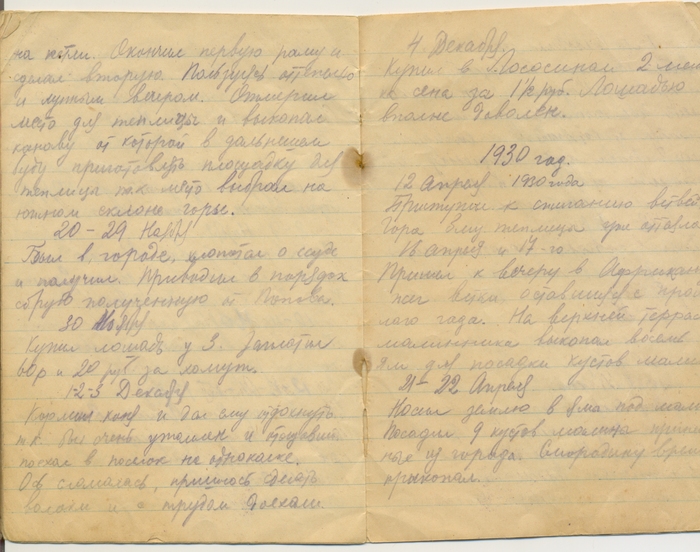 на петли. Окончил первую раму и
сделал вторую. Пользуясь оттепелью
и лунным вечером. Отмерил
место для теплицы и выкопал
канаву от которой в дальнейшем
буду приготовлять площадку для
теплицы так место выбрал на
южном склоне горы.
20 – 29 Ноября
Был в городе, хлопотал о ссуде
и получил. Приводил в порядок
сбрую полученную от Попова.
30 Ноября
Купил лошадь у З. Заплатил
60р и 20 руб за хомут.
1-2-3 Декабря
Кормил коня и дал ему отдохнуть
т.к. был очень утомлен и
поехал в поселок
Ось сломалась, пришлось делать
волоки и с трудом доехали.
4 Декабря.
Купил в Лососиной 2
сена за 1½ руб. Лошадью
вполне доволен.
1930 год.
12 Апреля 1930 года
Приступил к сжиганию
Гора
16 Апреля и 17-го
Пришел к вечеру в
жег ветки оставшиеся с прош
лого года. На верхней
малинника выкопал восемь
ям для посадки кустов
21 – 22 Апреля
Носил землю в ямы под
Посадил 9 кустов малины
ные из города. Смородину
прикопал.